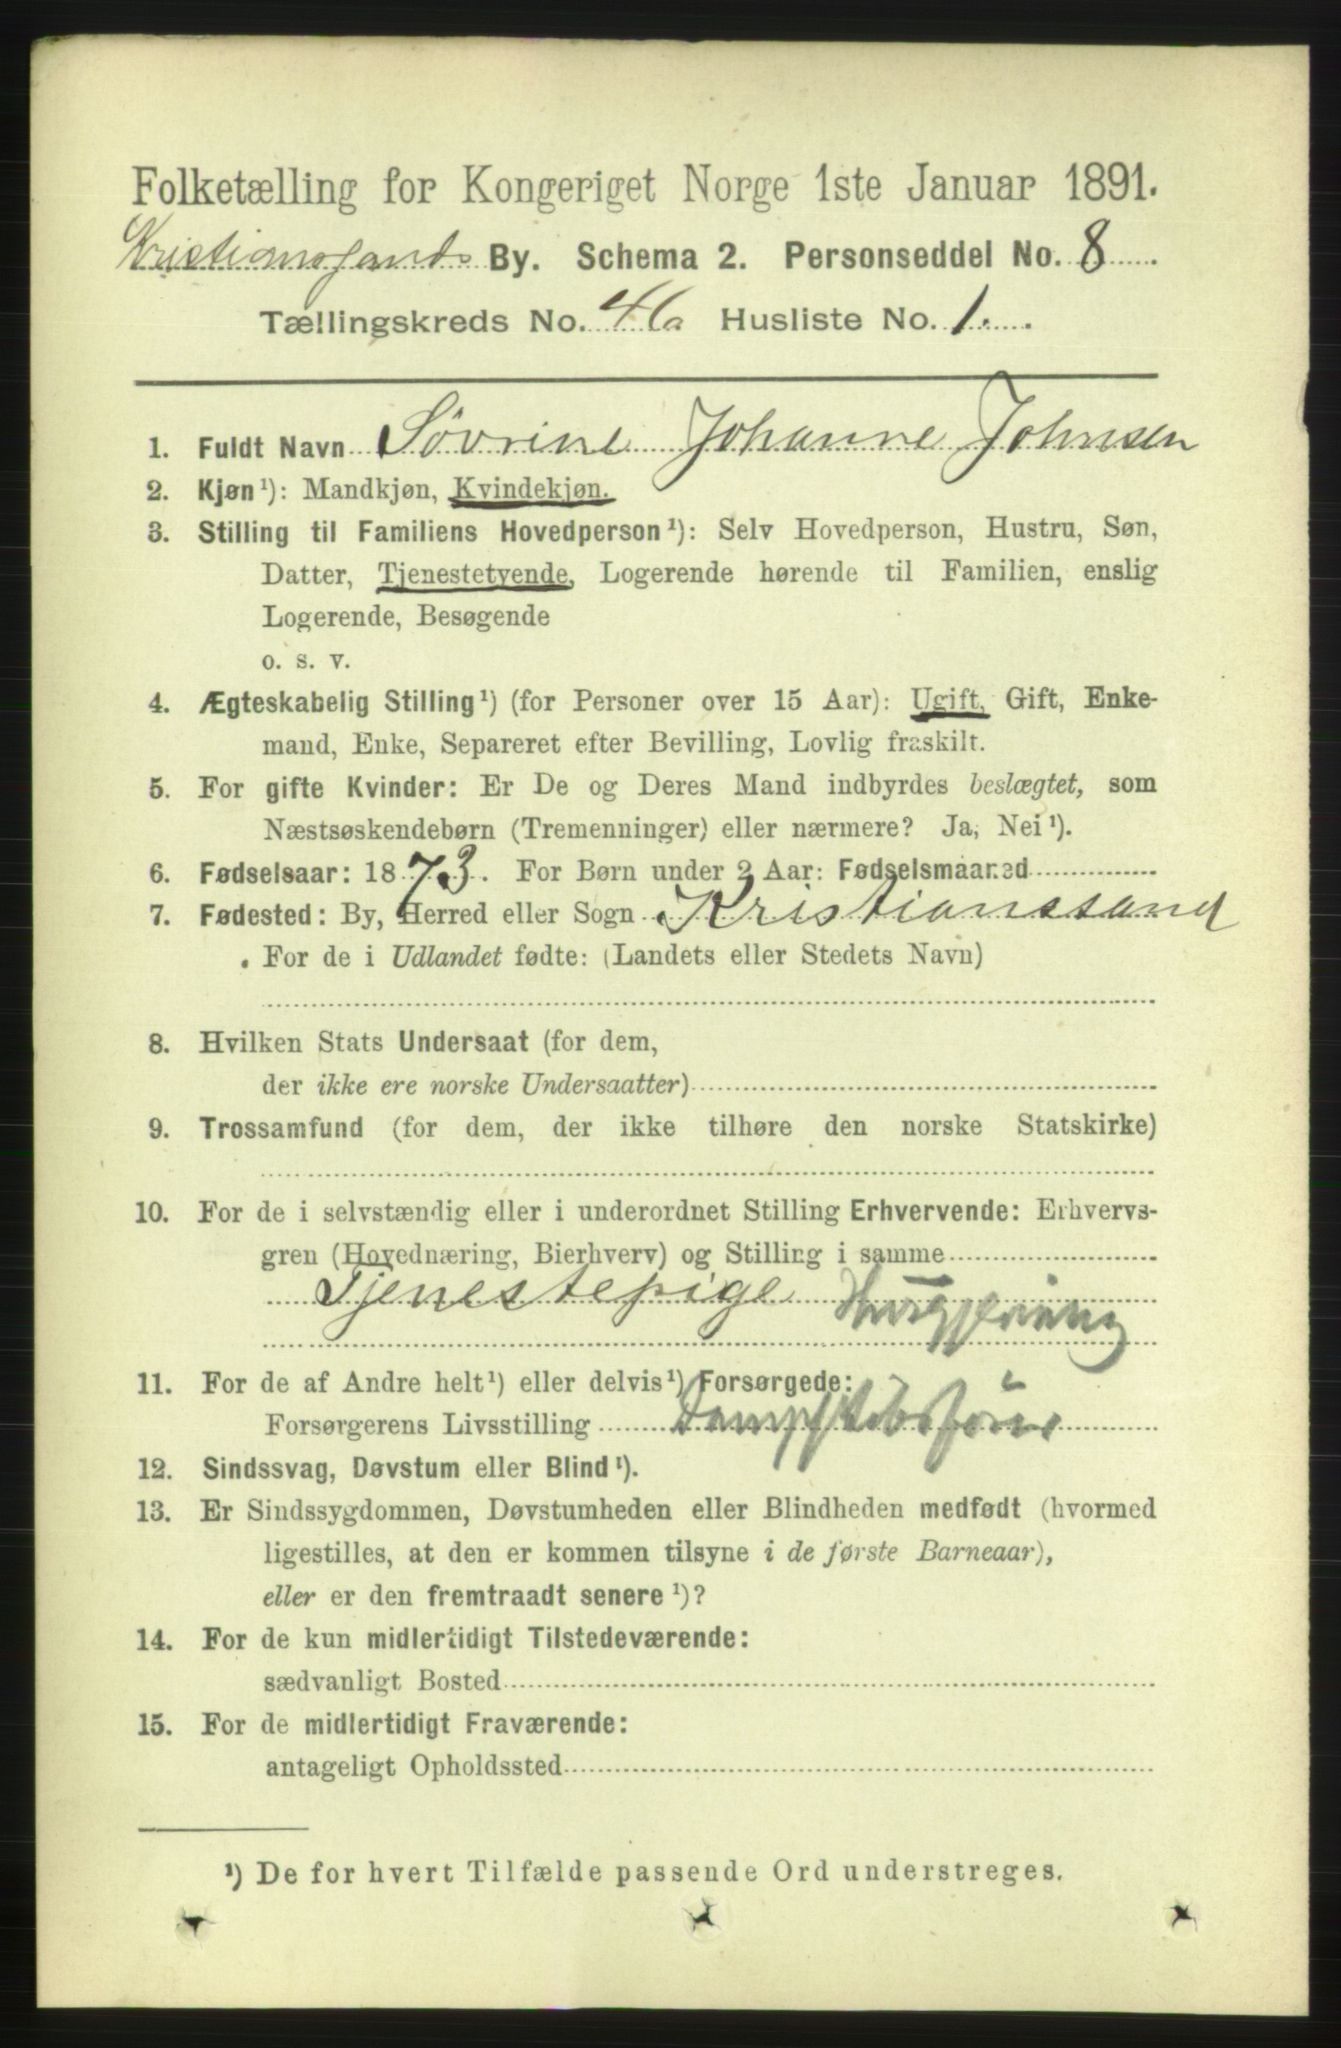 Folketælling for Kongeriget Norge 1ste Januar 1891.
Kristianssands By. Schema 2. Personseddel No. 8
Tællingskreds No. 46 Husliste No. 1.
1. Fuldt Navn Søvrine Johanne Johnsen
2. Kjøn¹): Mandkjøn, Kvindekjøn.
3. Stilling til Familiens Hovedperson¹): Selv Hovedperson, Hustru, Søn,
Datter, Tjenestetyende, Logerende hørende til Familien, enslig
Logerende, Besøgende
o. s. v.
4. Ægteskabelig Stilling¹) (for Personer over 15 Aar): Ugift, Gift, Enke-
mand, Enke, Separeret efter Bevilling, Lovlig fraskilt.
5. For gifte Kvinder: Er De og Deres Mand indbyrdes beslægtet, som
Næstsøskendebørn (Tremenninger) eller nærmere? Ja, Nei¹).
6. Fødselsaar: 1873. For Børn under 2 Aar: Fødselsmaaned
7. Fødested: By, Herred eller Sogn Kristianssand
For de i Udlandet fødte: (Landets eller Stedets Navn)
8. Hvilken Stats Undersaat (for dem,
der ikke ere norske Undersaatter)
9. Trossamfund (for dem, der ikke tilhøre den norske Statskirke)
10. For de i selvstændig eller i underordnet Stilling Erhvervende: Erhvervs-
gren (Hovednæring, Bierhverv) og Stilling i samme
Tjenestepige Husgjerning
11. For de af Andre helt¹) eller delvis¹) Forsørgede:
Forsørgerens Livsstilling
12. Sindssvag, Døvstum eller Blind¹).
13. Er Sindssygdommen, Døvstumheden eller Blindheden medfødt (hvormed
ligestilles, at den er kommen tilsyne i de første Barneaar),
eller er den fremtraadt senere¹)?
14. For de kun midlertidigt Tilstedeværende:
sædvanligt Bosted
15. For de midlertidigt Fraværende:
antageligt Opholdssted
¹) De for hvert Tilfælde passende Ord understreges.